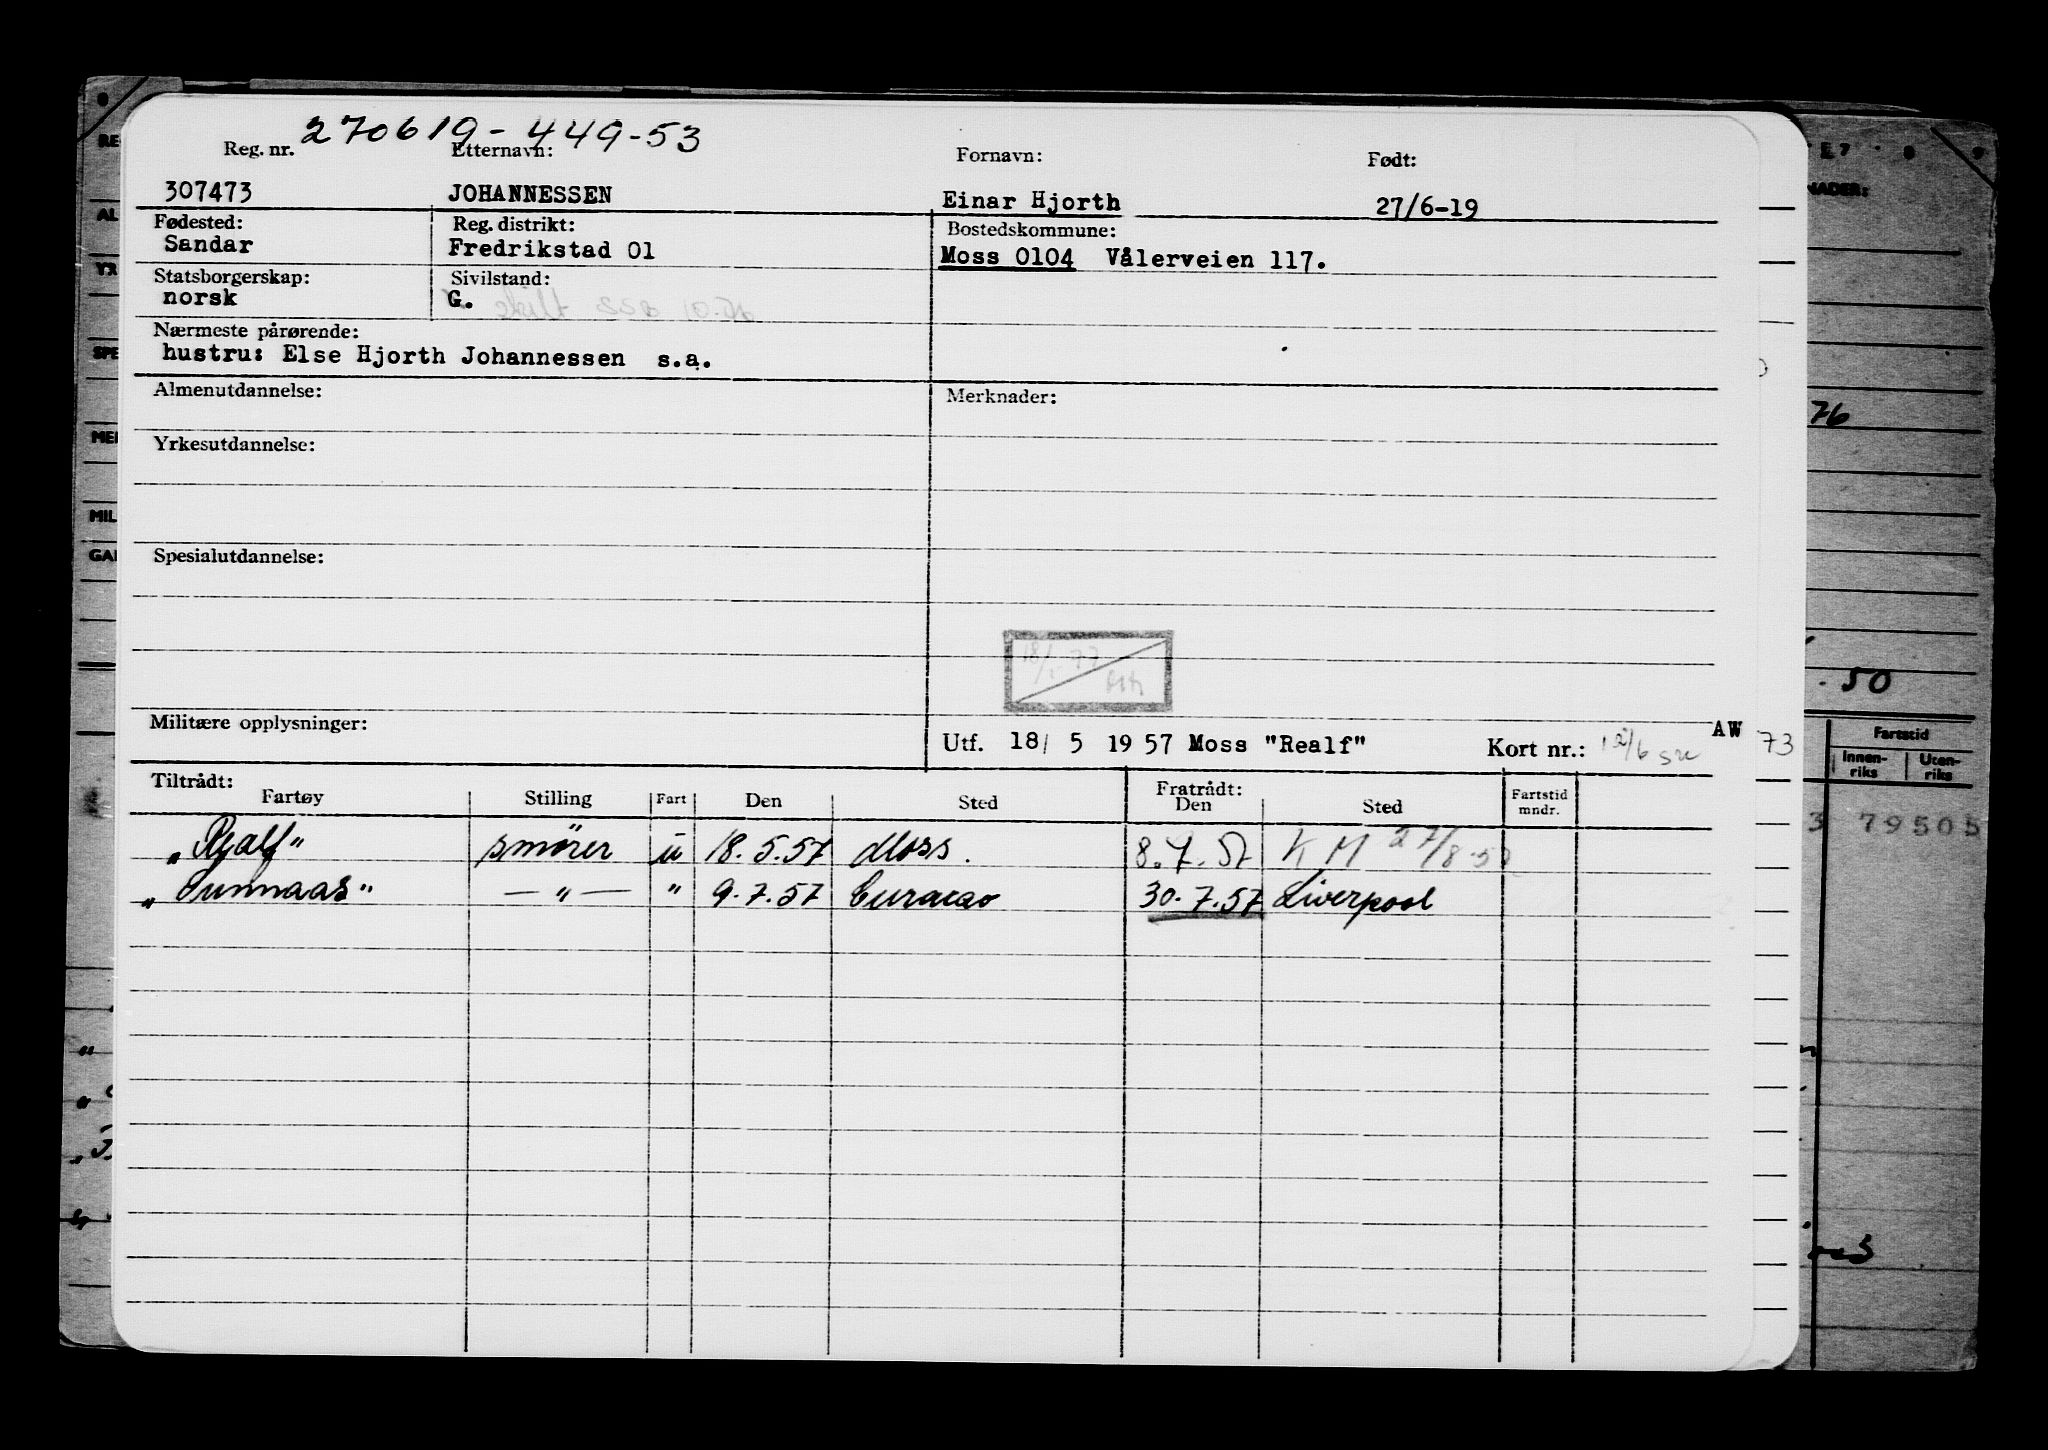 270619-449-53
Reg. nr. Etternavn: Fornavn: Født:
307473 JOHANNESSEN Einar Hjorth 27/6-19
Fødested: Reg. distrikt: Bostedskommune:
Sandar Fredrikstad 01 Moss 0104 Vålerveien 117.
Statsborgerskap: Sivilstand:
norsk G. skilt
Nærmeste pårørende:
hustru: Else Hjorth Johannessen s.a.
Almenutdannelse: Merknader:
Yrkesutdannelse:
Spesialutdannelse:
Militære opplysninger:
Utf. 18/ 5 1957 Moss "Realf" Kort nr.: AW 73
Tiltrådt: Fratrådt:
Fartøy Stilling Fart Den Sted Den Sted Fartstid mndr.
smörer u 18.5.57 Moss. 8.7.57 K M 27/8.57
"Sunnaas" — " — " 9.7.57 Curacao 30.7.57 Liverpool
76
.50
Fartstid
Innen-riks Uten-riks
3 79505